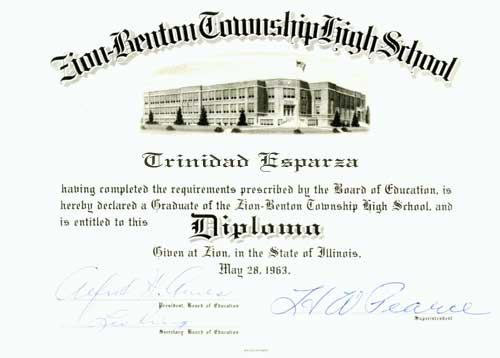 Zion-Benton Township High School
Trinidad Esparza
having completed the requirements prescribed by the Board of Education, is
hereby declared a Graduate of the Zion-Benton Township High School, and
is entitled to this Diploma
Given at Zion, in the State of Illinois,
May 28, 1963.
President, Board of Education
H W Pearce
Superintendent
Secretary, Board of Education